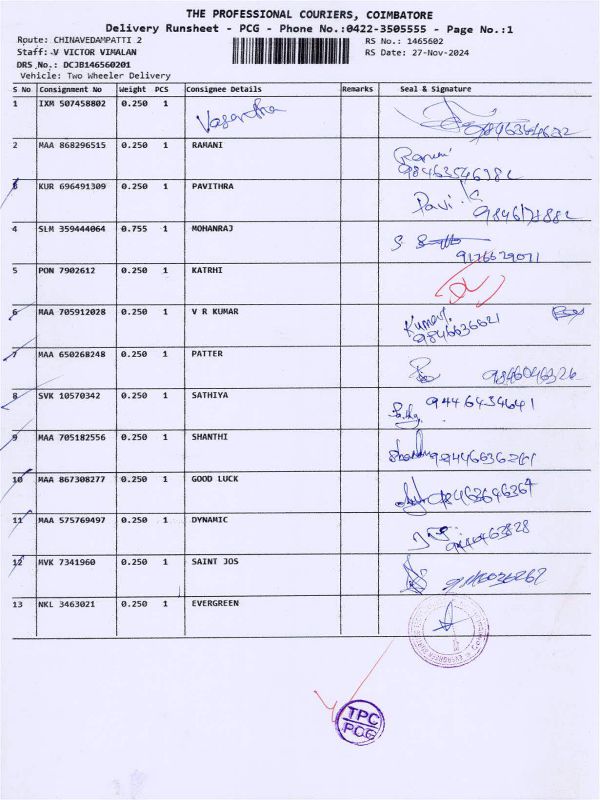 THE PROFESSIONAL COURIERS, COIMBATORE
Delivery Runsheet - PCG - Phone No.:0422-3505555 - Page No.:1
Route: CHINAVEDAMPATTI 2 RS No.: 1465602
Staff: V VICTOR VIMALAN RS Date: 27-Nov-2024
DRS No.: DCJB146560201
Vehicle: Two Wheeler Delivery
S No Consignment No Weight PCS Consignee Details Remarks Seal & Signature
1 IXM 507458802 0.250 1 Vasantha
2 MAA 868296515 0.250 1 RAMANI Ramani
3 KUR 696491309 0.250 1 PAVITHRA Pavi
4 SLM 359444064 0.755 1 MOHANRAJ 9176629071
5 PON 7902612 0.250 1 KATRHI
6 MAA 705912028 0.250 1 V R KUMAR Kumar
9846636621
7 MAA 650268248 0.250 1 PATTER 9846046326
8 SVK 10570342 0.250 1 SATHIYA 9446434641
9 MAA 705182556 0.250 1 SHANTHI
10 MAA 867308277 0.250 1 GOOD LUCK
11 MAA 575769497 0.250 1 DYNAMIC
12 MVK 7341960 0.250 1 SAINT JOS
13 NKL 3463021 0.250 1 EVERGREEN
TPC
PCG